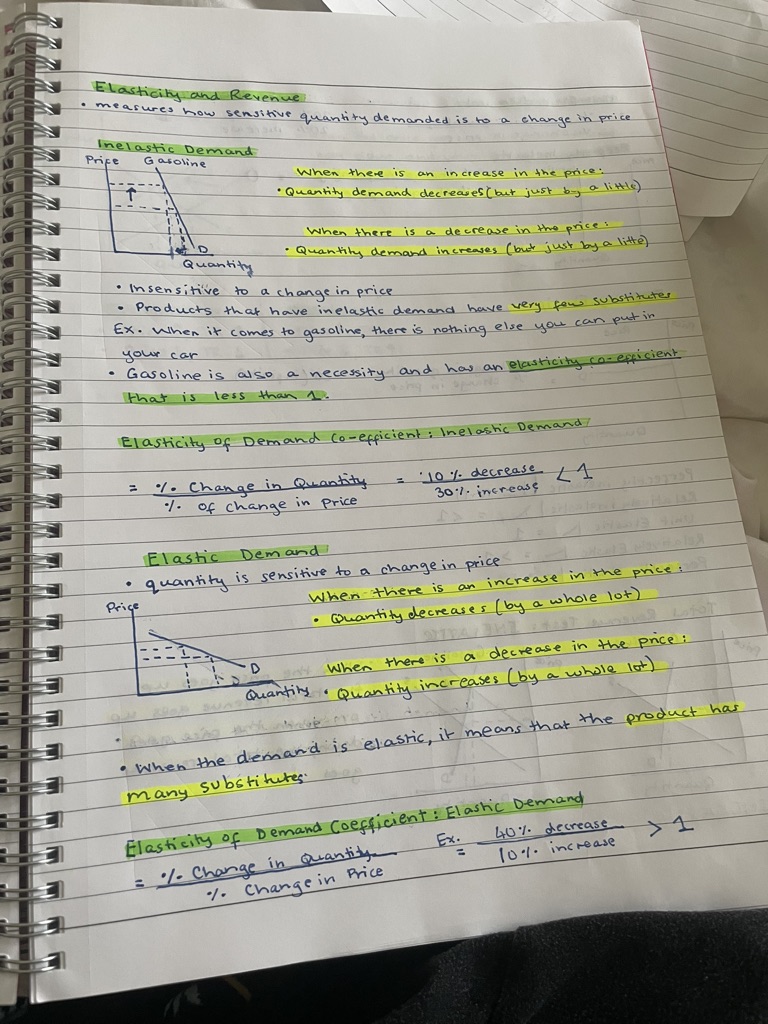 Elasticity and Revenue
• measures how sensitive quantity demanded is to a change in price
Inelastic Demand
Price Gasoline
When there is an increase in the price:
• Quantity demand decreases (but just by a little)
When there is a decrease in the price:
• Quantity demand increases (but just by a litte)
D
Quantity
• Insensitive to a change in price
• Products that have inelastic demand have very few substitutes
Ex. When it comes to gasoline, there is nothing else you can put in
your car
• Gasoline is also a necessity and has an elasticity co-efficient
that is less than 1.
Elasticity of Demand Co-efficient: Inelastic Demand
= % Change in Quantity = 10% decrease < 1
% of change in Price 30% increase
Elastic Demand
• quantity is sensitive to a change in price
Price
When there is an increase in the price:
• Quantity decreases (by a whole lot)
When there is a decrease in the price:
D
D
Quantity • Quantity increases (by a whole lot)
• When the demand is elastic, it means that the product has
many substitutes.
Elasticity of Demand Coefficient: Elastic Demand
= % Change in Quantity Ex. = 40% decrease > 1
% Change in Price 10% increase